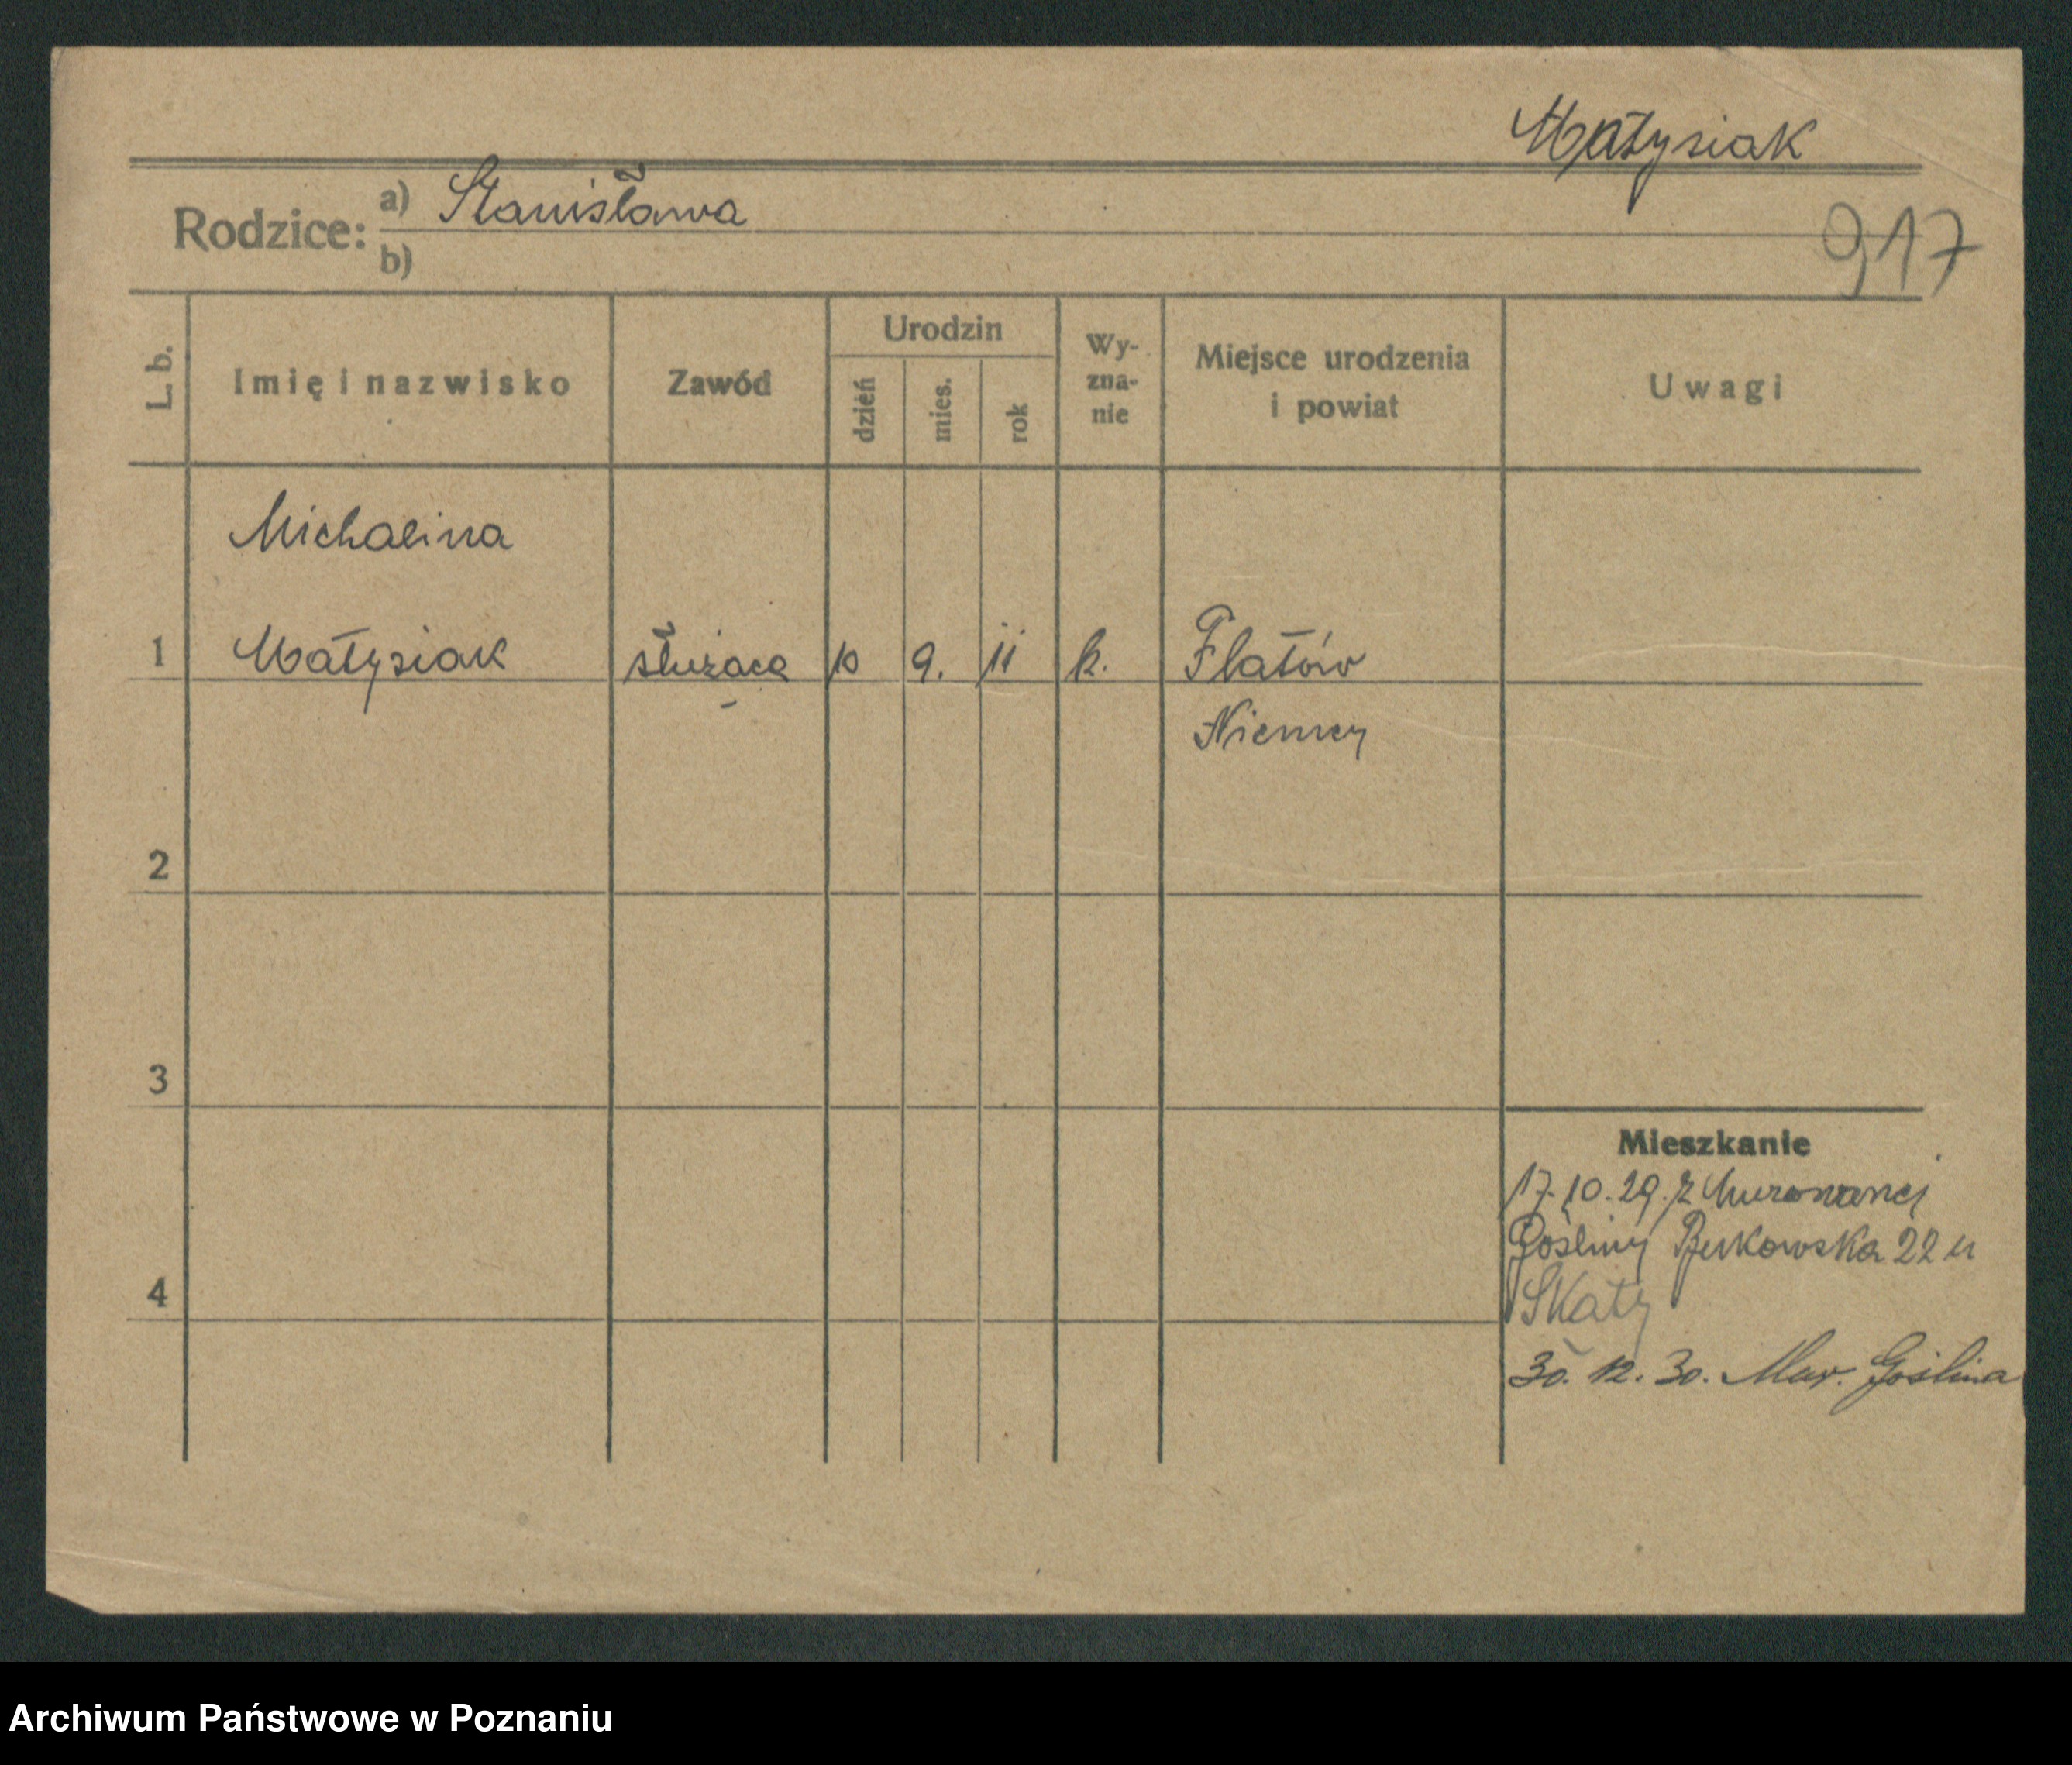 Małysiak
Rodzice: a) Stanisława
b)
917
L. b.
Imię i nazwisko
Zawód
Urodzin
dzień
mies.
rok
Wy-
zna-
nie
Miejsce urodzenia
i powiat
Uwagi
Michalina
1 Małysiak służąca 10 9. 11 k. Flatów
Niemcy
2
3
4
Mieszkanie
17.10.29. z Murowanej
Gośliny Bukowska 22 u
Skały
30. 12. 30. Mur. Goślina
Archiwum Państwowe w Poznaniu